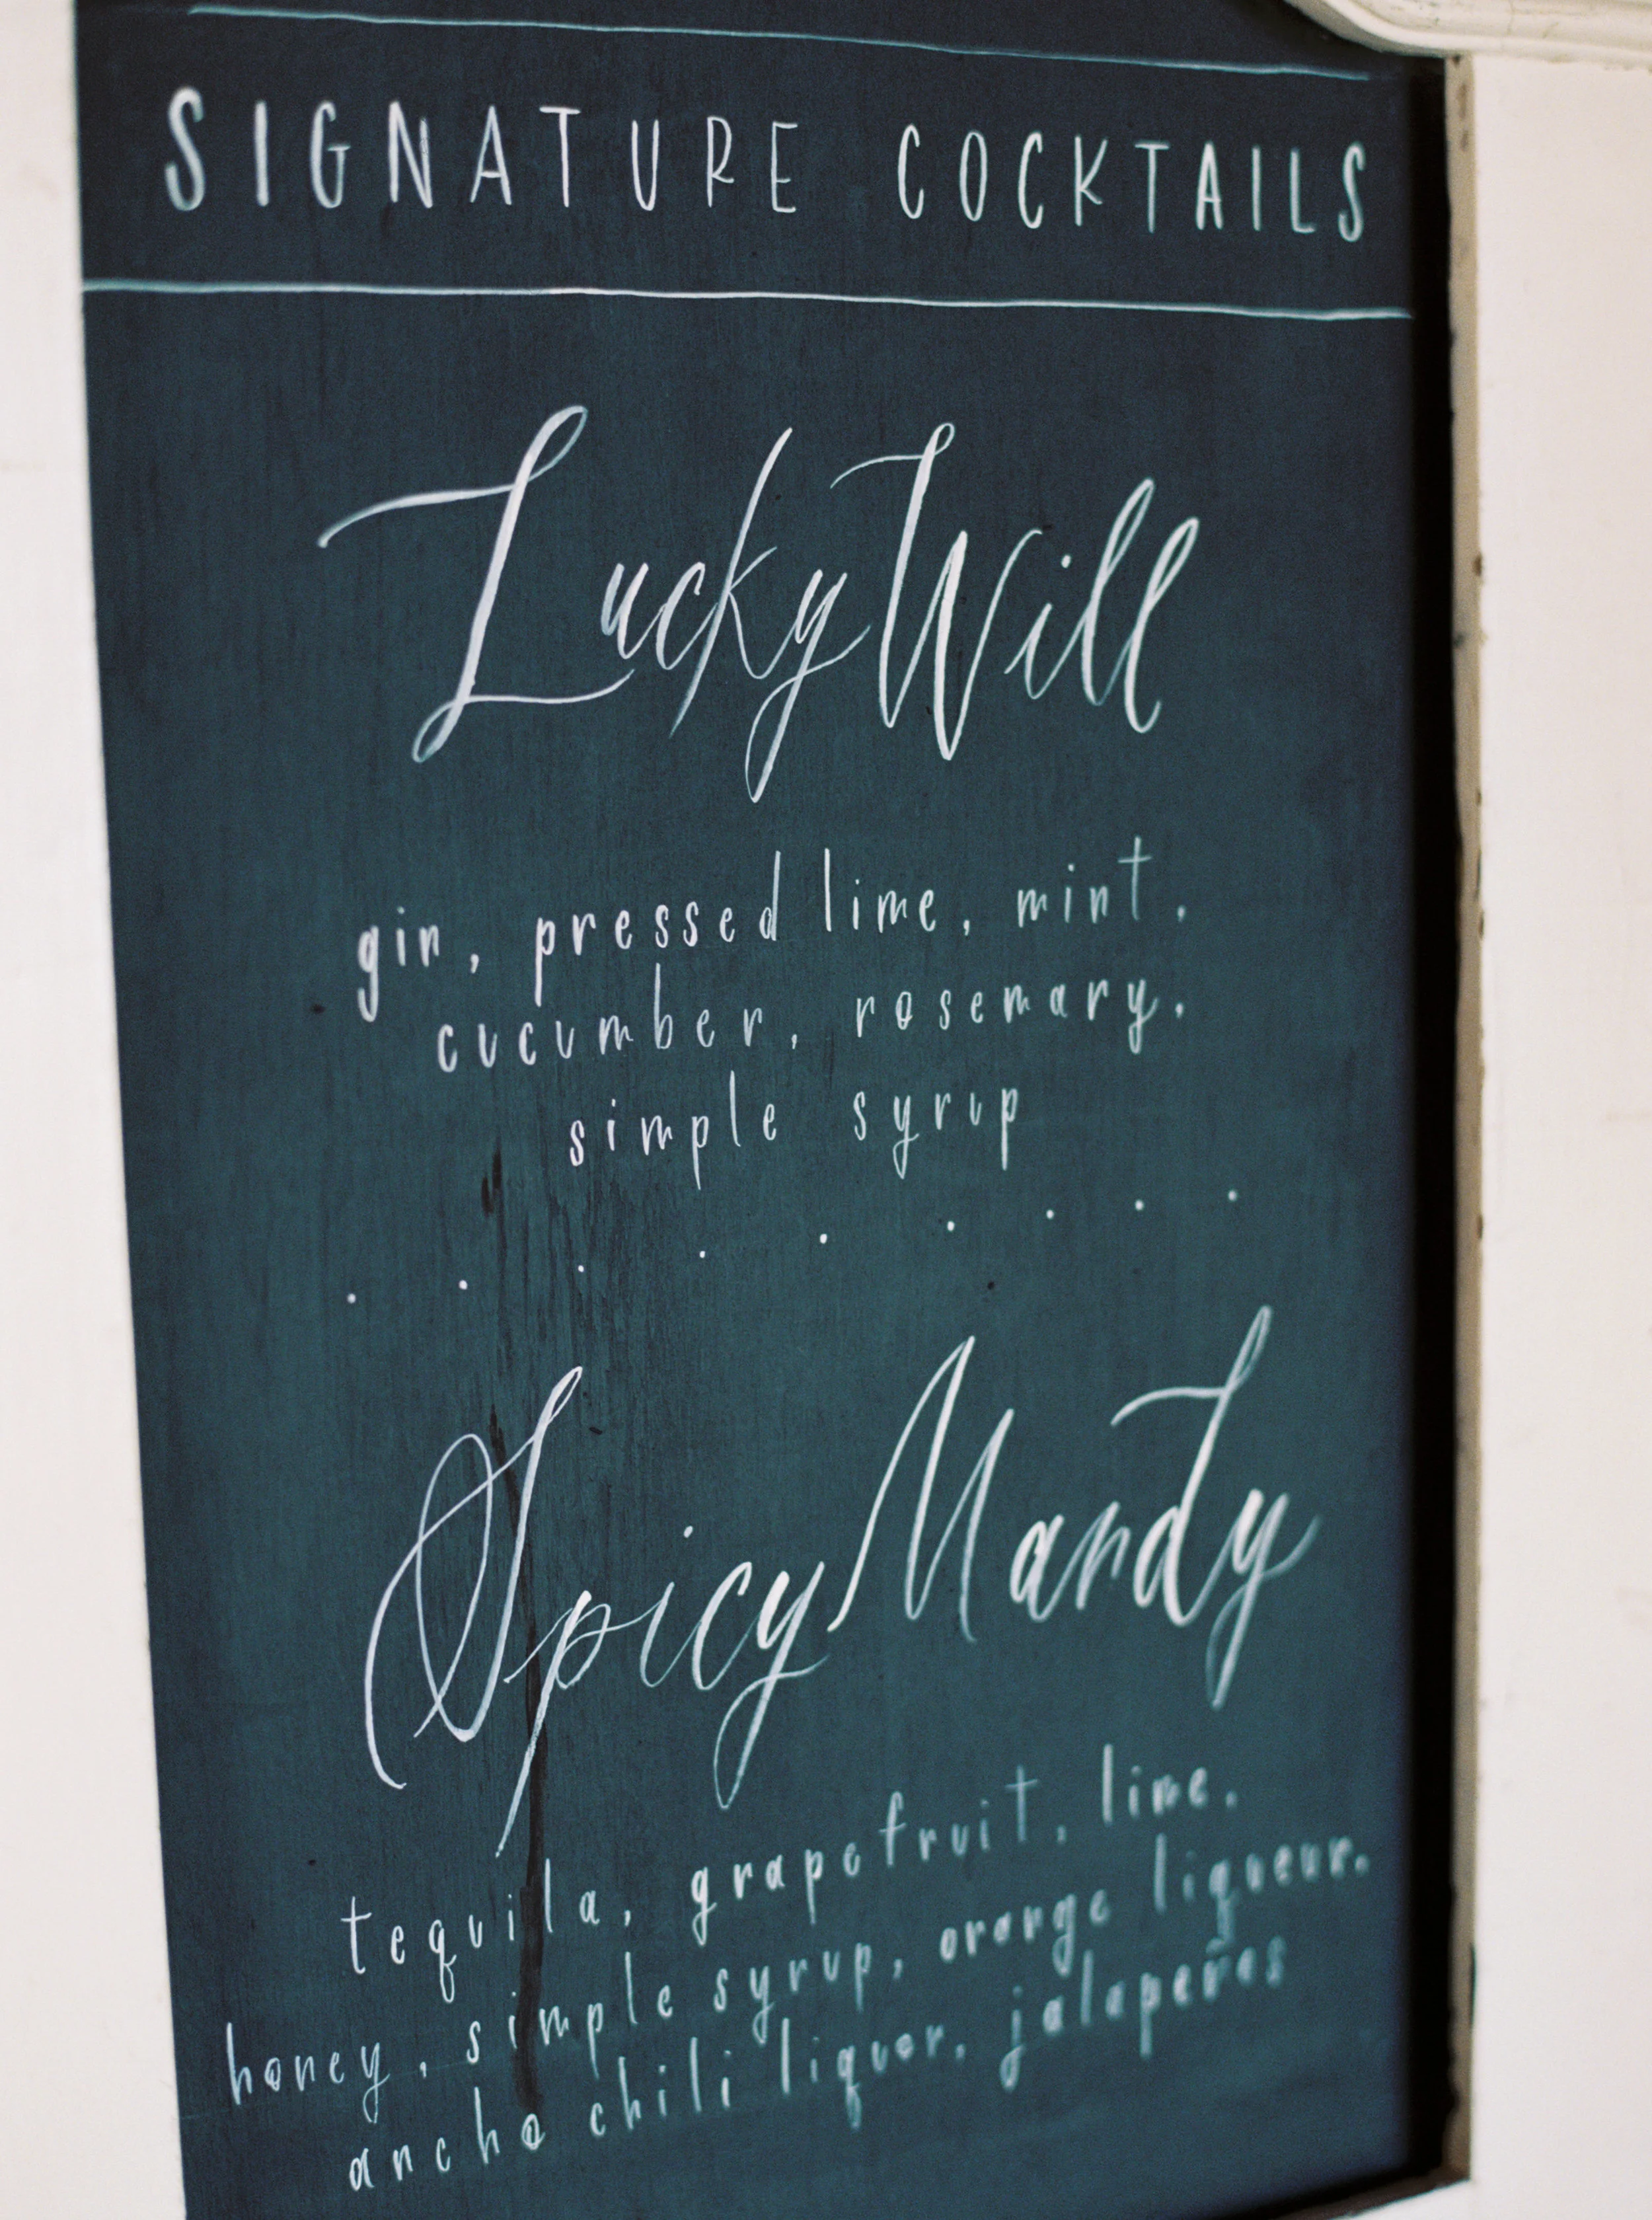 SIGNATURE COCKTAILS
Lucky Will
gin, pressed lime, mint,
cucumber, rosemary,
simple syrup
Spicy Mandy
tequila, grapefruit, lime,
honey, simple syrup, orange liqueur,
ancho chili liquor, jalapeños